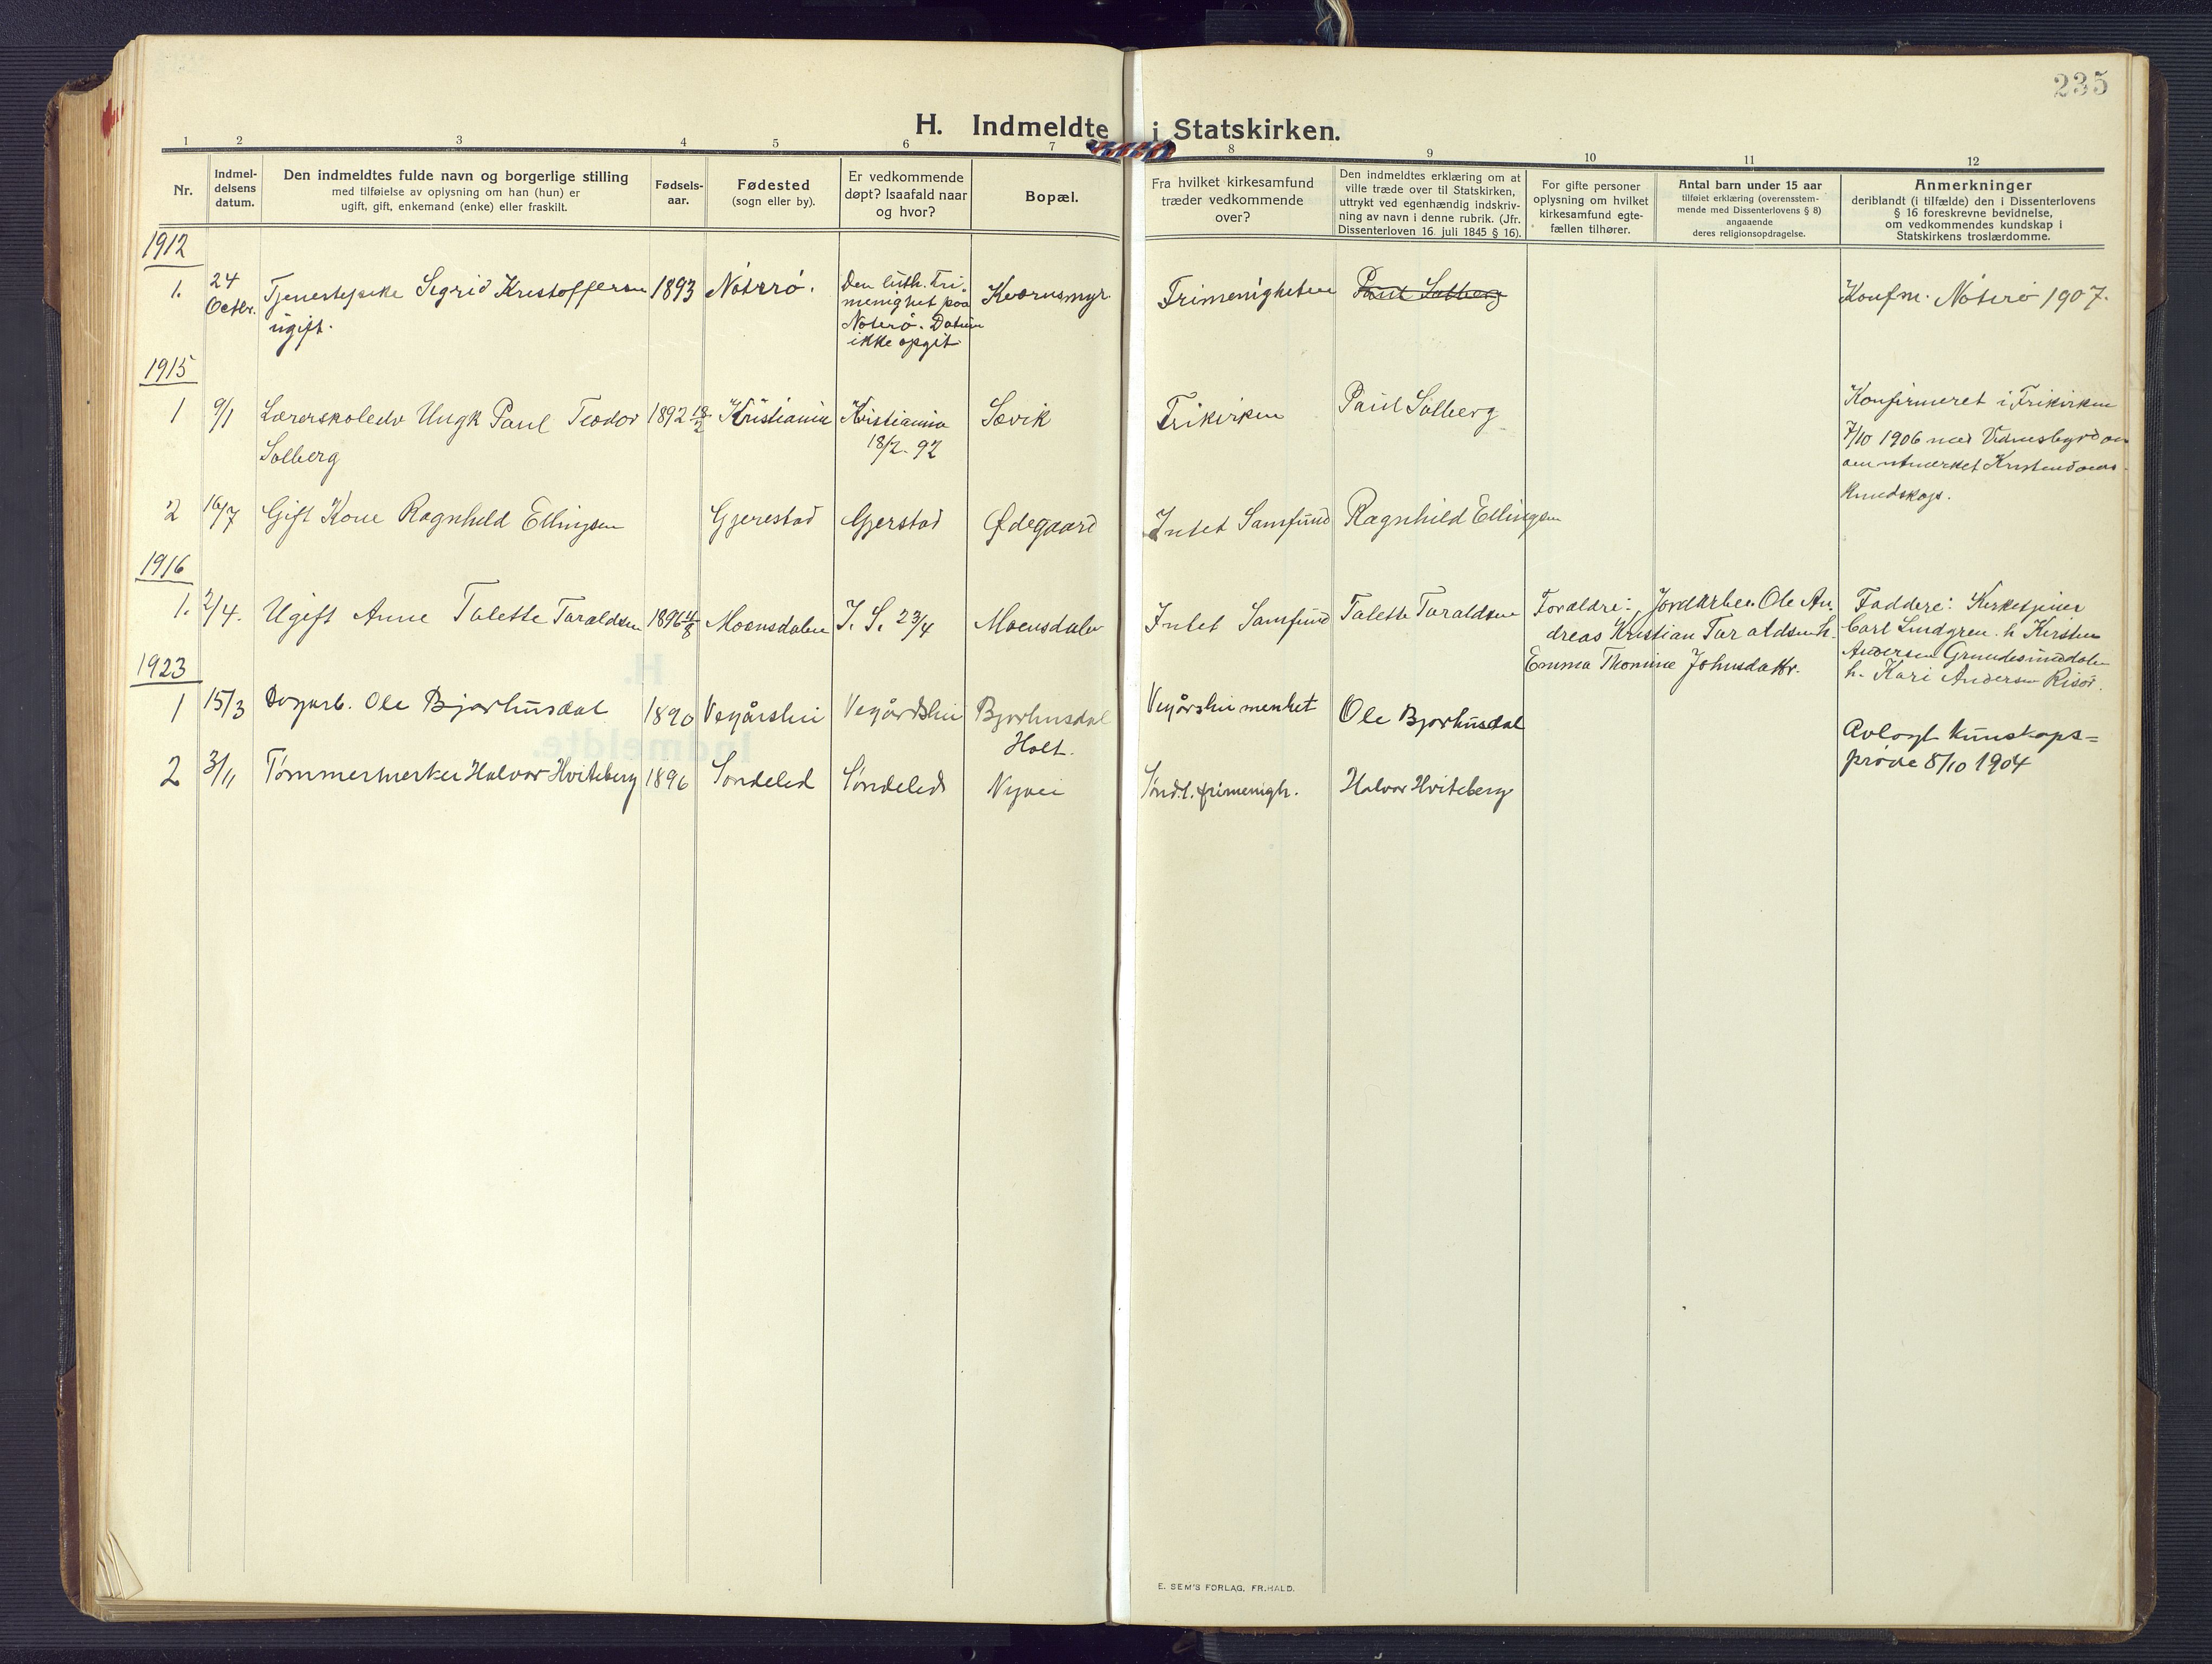 235
H. Indmeldte i Statskirken.
1 2 3 4 5 6 7 8 9 10 11 12
Nr.
Indmel-
delsens
datum.
Den indmeldtes fulde navn og borgerlige stilling
med tilføielse av oplysning om han (hun) er
ugift, gift, enkemand (enke) eller fraskilt.
Fødsels-
aar.
Fødested
(sogn eller by).
Er vedkommende
døpt? Isaafald naar
og hvor?
Bopæl.
Fra hvilket kirkesamfund
træder vedkommende
over?
Den indmeldtes erklæring om at
ville træde over til Statskirken,
uttrykt ved egenhændig indskriv-
ning av navn i denne rubrik. (Jfr.
Dissenterloven 16. juli 1845 § 16).
For gifte personer
oplysning om hvilket
kirkesamfund egte-
fællen tilhører.
Antal barn under 15 aar
tilføiet erklæring (overensstem-
mende med Dissenterlovens § 8)
angaaende
deres religionsopdragelse.
Anmerkninger
deriblandt (i tilfælde) den i Dissenterlovens
§ 16 foreskrevne bevidnelse,
om vedkommendes kundskap i
Statskirkens troslærdomme.
1912
1.
24
Octbr.
Tjenestepike Sigrid Kristoffersen
ugift.
1893
Nøterø.
Den luth. Fri-
menighet paa
Nøterø. Datum
ikke opgit
Kvernsmyr
Frimenigheten
Paul Solberg
Konfm. Nøterø 1907.
1915
1
9/1
Lærerskoleelv Ungk Paul Teodor
Solberg
1892 18/2
Kristiania
Kristiania
18/2. 92
Sævik
Frikirken
Paul Solberg
Konfirmeret i Frikirken
7/10 1906 med Vidnesbyrd om
kundskap.
2
16/7
Gift Kone Ragnhild Ellingsen
Gjerestad
Gjerstad
Ødegaard
Intet Samfund
Ragnhild Ellingsen
1916
1.
2/4.
Ugift Anne Talette Taraldsen
1896
Moensdalen
I. S. 23/4
Moensdalen
Intet Samfund
Talette Taraldsen
Forældre: Jordarbei. Ole An,
dreas Kristian Taraldsen h.
Emma Thomine Johnsdattr.
Faddere: Kirketjener
Carl Lindgren. h. Kirsten
Andersen
h. Kari Andersen Risør.
1923
1
15/3
Ole Bjorhusdal
1890
Vegårshei
Vegårdshei
Bjorhusdal
Holt.
Vegårshei menhet
Ole Bjorhusdal
Avlagt kunskaps=
prøve 8/10 1904
2
3/11
Tømmermerker Halvor Hviteberg
1896
Søndeled
Søndeled
Nyvei
Sønd.l. frimenigh.
Halvor Hviteberg
E. SEM'S FORLAG, FR.HALD.